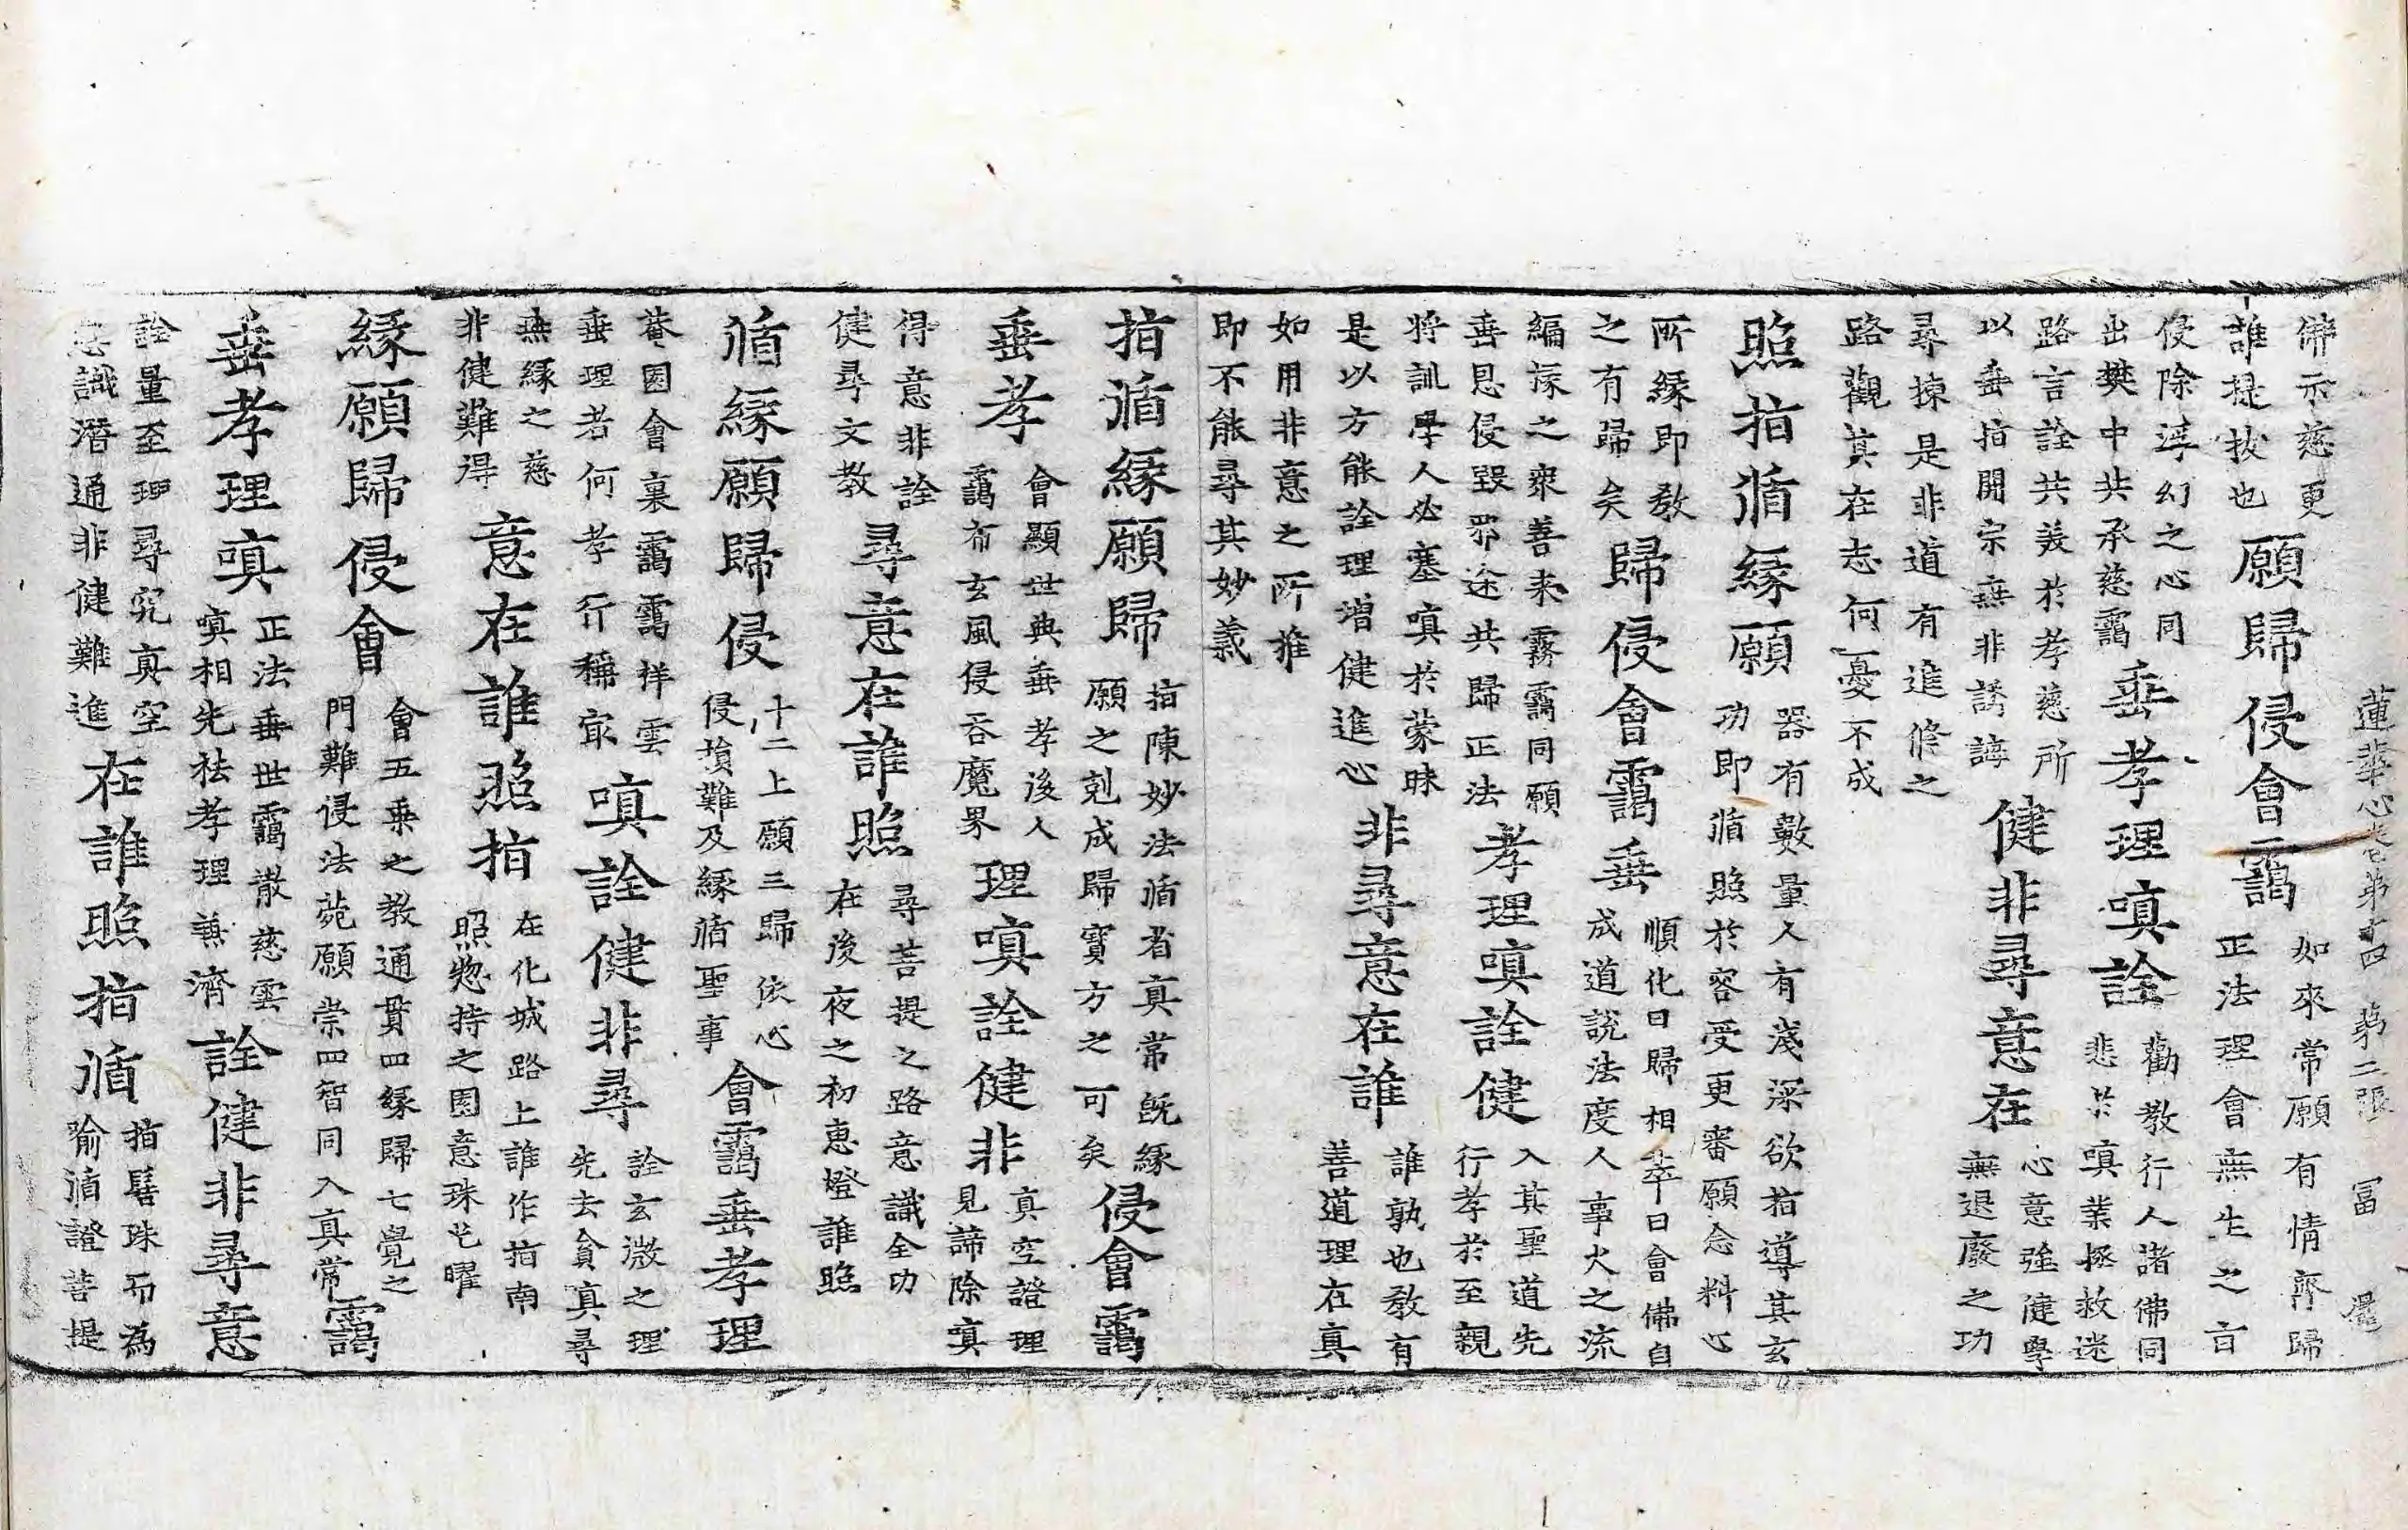 蓮華心卷第十四 第二張 富 暹
佛示慈更
誰提拔也
願歸侵會靄
如來常願有情齊歸
正法理會無生之旨
侵除浮幻之心同
出樊中共承慈靄
垂孝理嗔詮
勸教行人諸佛同
悲於嗔業拯救迷
路言詮共羨於孝慈所
以垂指開宗無非誘誨
健非尋意在
心意強健學
無退廢之功
尋揀是非道有進修之
路觀其在志何憂不成
照指循緣願
器有數量人有淺深欲指導其玄
功即循照於容受更審願念料心
所緣即教
之有歸矣
歸侵會靄垂
順化日歸相萃日會佛自
成道說法度人事火之流
編之衆善来霧靄同願
垂恩侵毀邪途共歸正法
孝理嗔詮健
入其聖道先
行孝於至親
將訓學人必塞嗔於蒙昧
是以方能詮理增健進心
非尋意在誰
誰孰也教有
善道理在真
如用非意之所推
即不能尋其妙義
指循緣願歸
指陳妙法循省真常既緣
願之剋成歸寶方之可矣
侵會靄
垂孝
會顯世典垂孝後人
靄布玄風侵吞魔界
理嗔詮健非
真空證理
見諦除嗔
得意非詮
健尋文教
尋意在誰照
尋菩提之路意識全功
在後夜之初惠燈誰照
循緣願歸侵
十二上願三歸依心
侵損難及緣循聖事
會靄垂孝理
菴園會裏靄靄祥雲
垂理者何孝行稱㝡
嗔詮健非尋
詮玄微之理
先去貪真尋
無緣之慈
非健難得
意在誰照指
在化城路上誰作指南
照惣持之園意珠光曜
緣願歸侵會
會五乘之教通貫四緣歸七覺之
門難侵法苑願崇四智同入真常
靄
垂孝理嗔
正法垂世靄散慈雲
嗔相先祛孝理兼濟
詮健非尋意
詮量至理尋究真空
意識潛通非健難進
在誰照指循
指髻珠而為
喻循證菩提